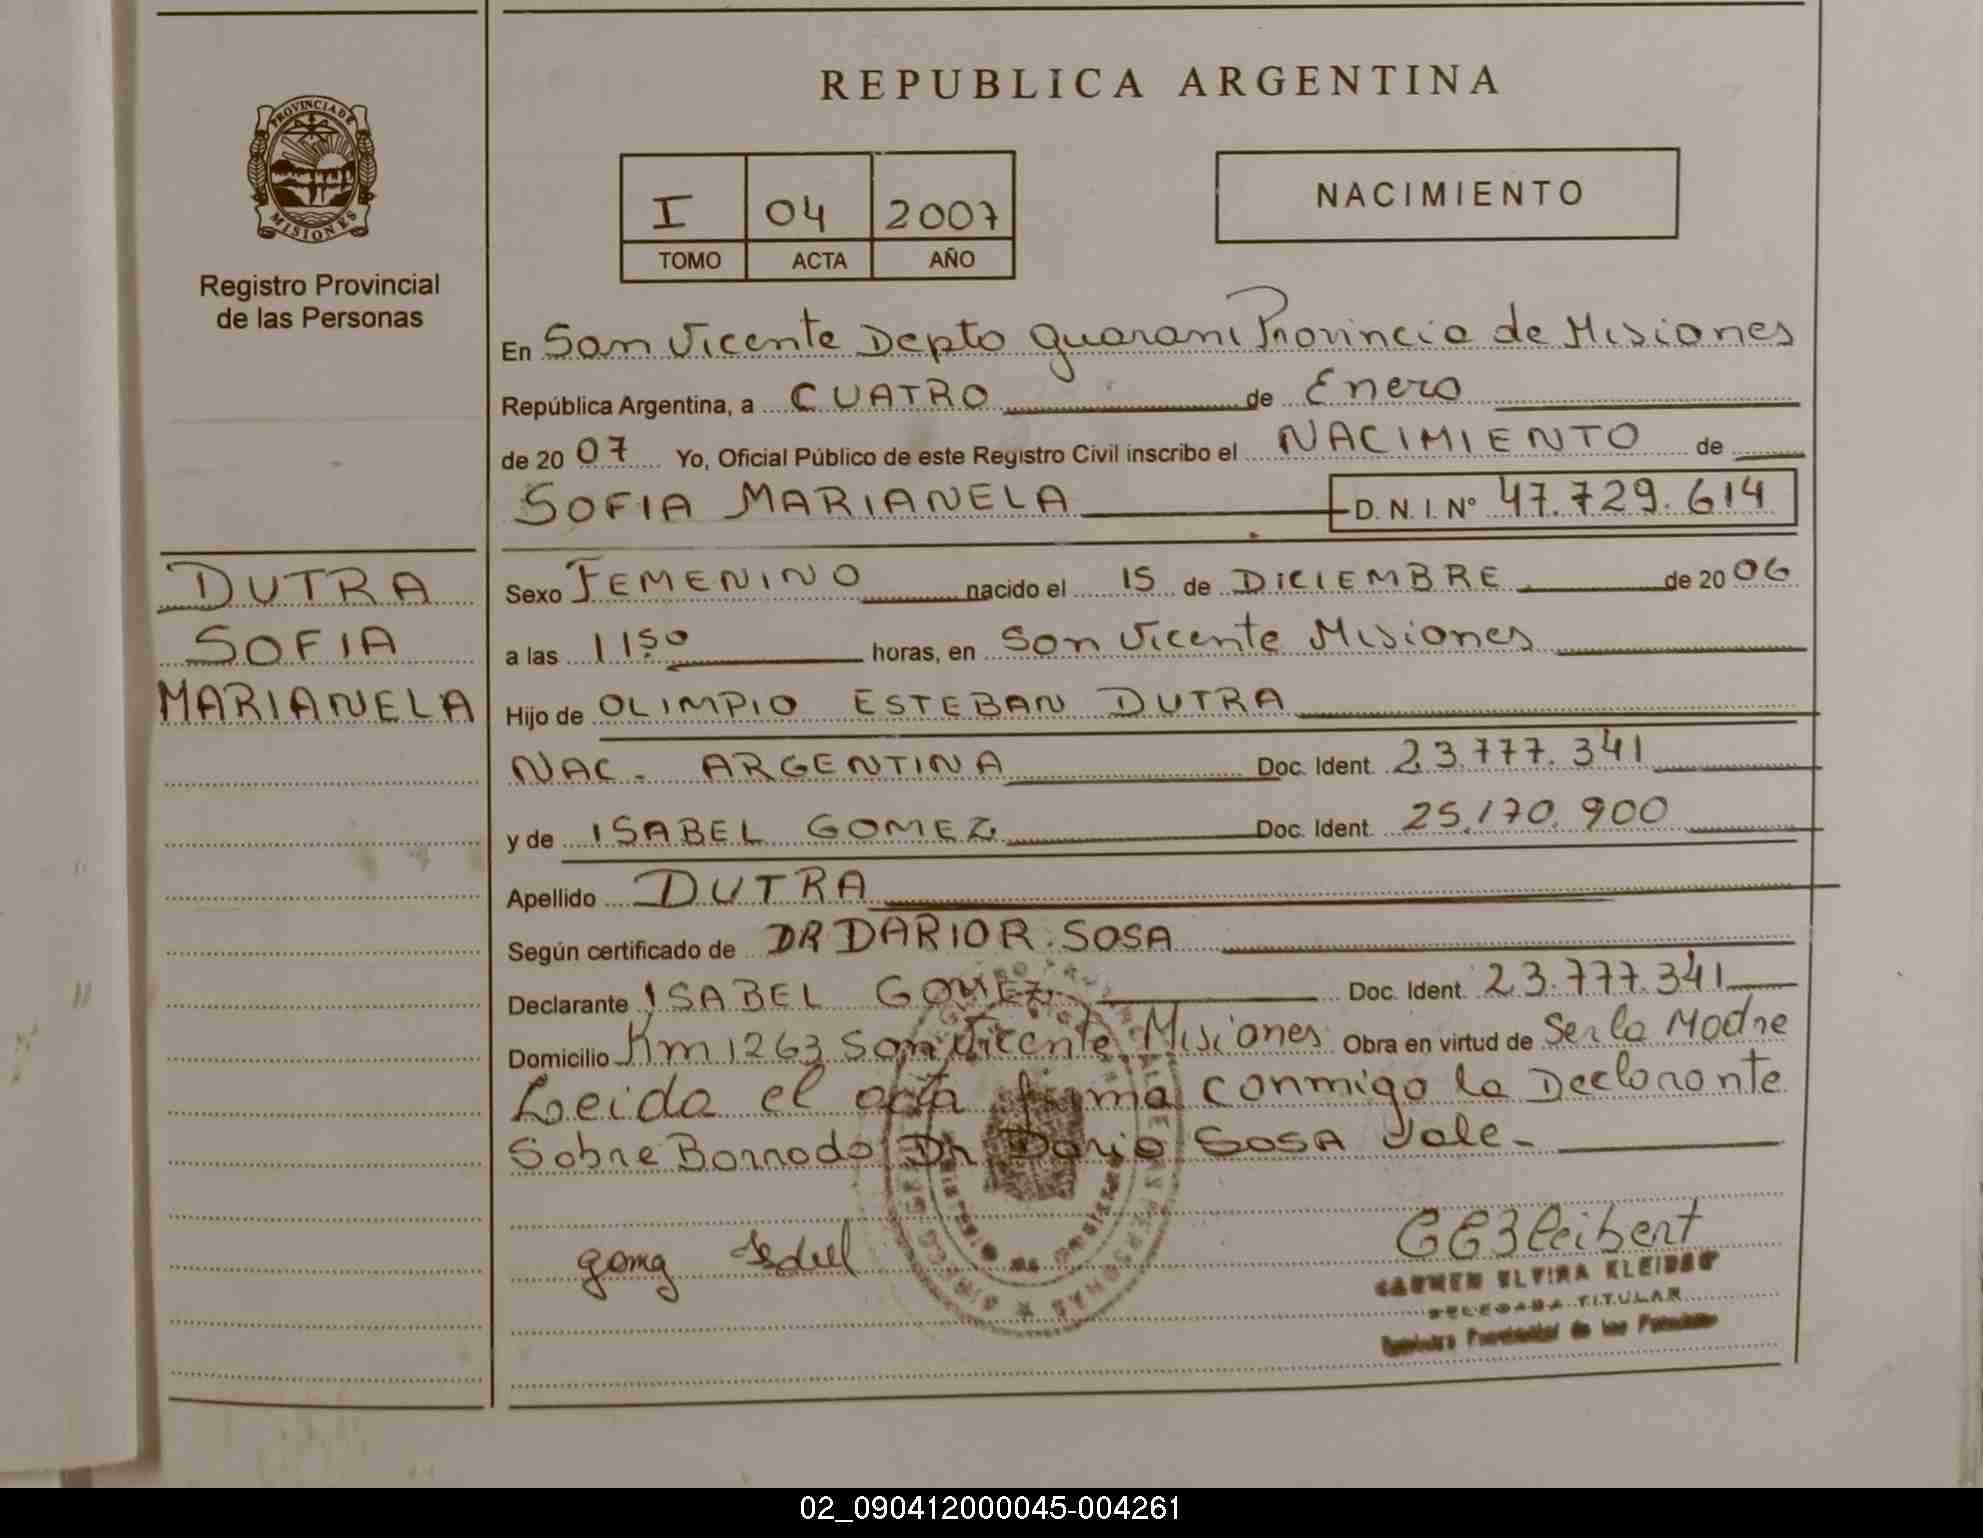 REPUBLICA ARGENTINA
PROVINCIA DE
MISIONES
Registro Provincial
de las Personas
I 04 2007
TOMO ACTA AÑO
NACIMIENTO
En San Vicente Depto Guarani Provincia de Misiones
República Argentina, a CUATRO de Enero
de 2007 Yo, Oficial Público de este Registro Civil inscribo el NACIMIENTO de
SOFIA MARIANELA D. N. I. Nº 47.729.614
DUTRA
SOFIA
MARIANELA
Sexo FEMENINO nacido el 15 de DICIEMBRE de 2006
a las 11 50 horas, en San Vicente Misiones
Hijo de OLIMPIO ESTEBAN DUTRA
NAC. ARGENTINA Doc. Ident. 23.777.341
y de ISABEL GOMEZ Doc. Ident. 25.170.900
Apellido DUTRA
Según certificado de DR DARIO R. SOSA
Declarante ISABEL GOMEZ Doc. Ident. 23.777.341
Domicilio Km 1263 San Vicente Misiones Obra en virtud de Ser la Madre
Leida el acta firma conmigo la Declarante
Sobre Borrado Dr Dario SOSA Vale-
CARMEN ELVIRA KLEIBERT
DELEGADA TITULAR
Registro Provincial de las Personas
02_090412000045-004261